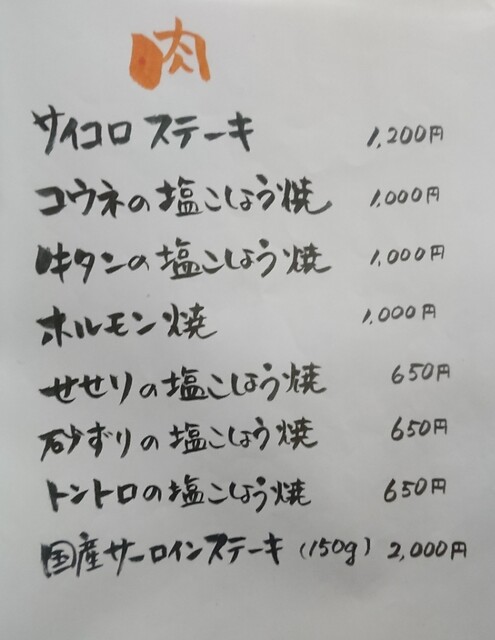 肉
サイコロステーキ 1,200円
コウネの塩こしょう焼 1,000円
牛タンの塩こしょう焼 1,000円
ホルモン焼 1,000円
せせりの塩こしょう焼 650円
砂ずりの塩こしょう焼 650円
トントロの塩こしょう焼 650円
国産サーロインステーキ (150g) 2,000円